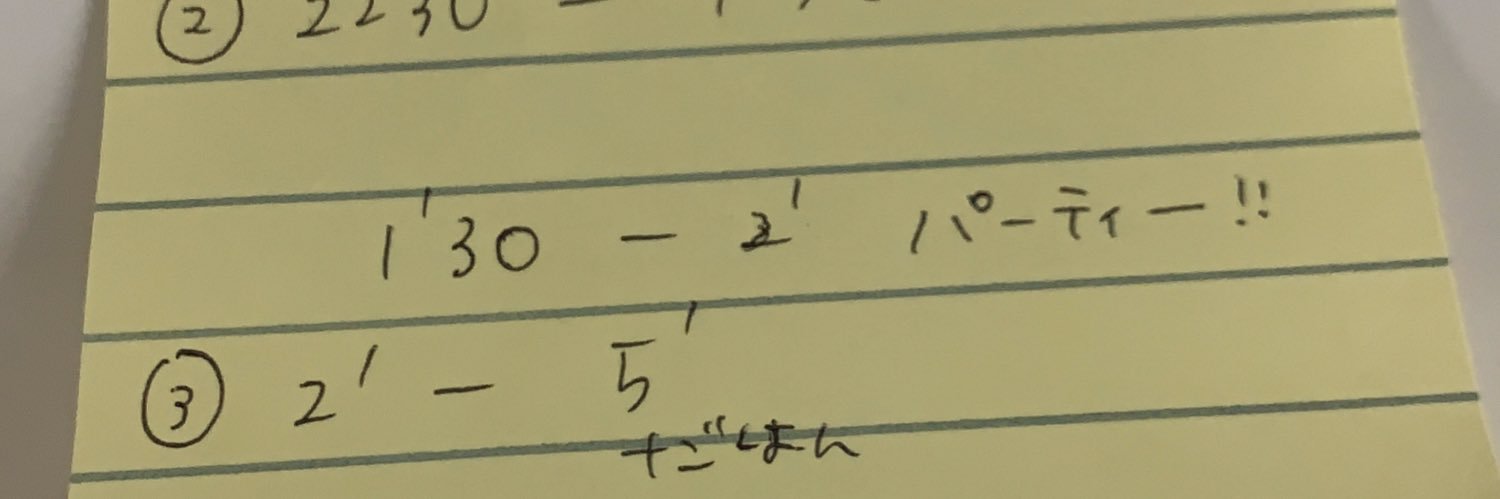 ② 2230 —
1'30 — 2' パーティー!!
③ 2' — 5'
+ごはん